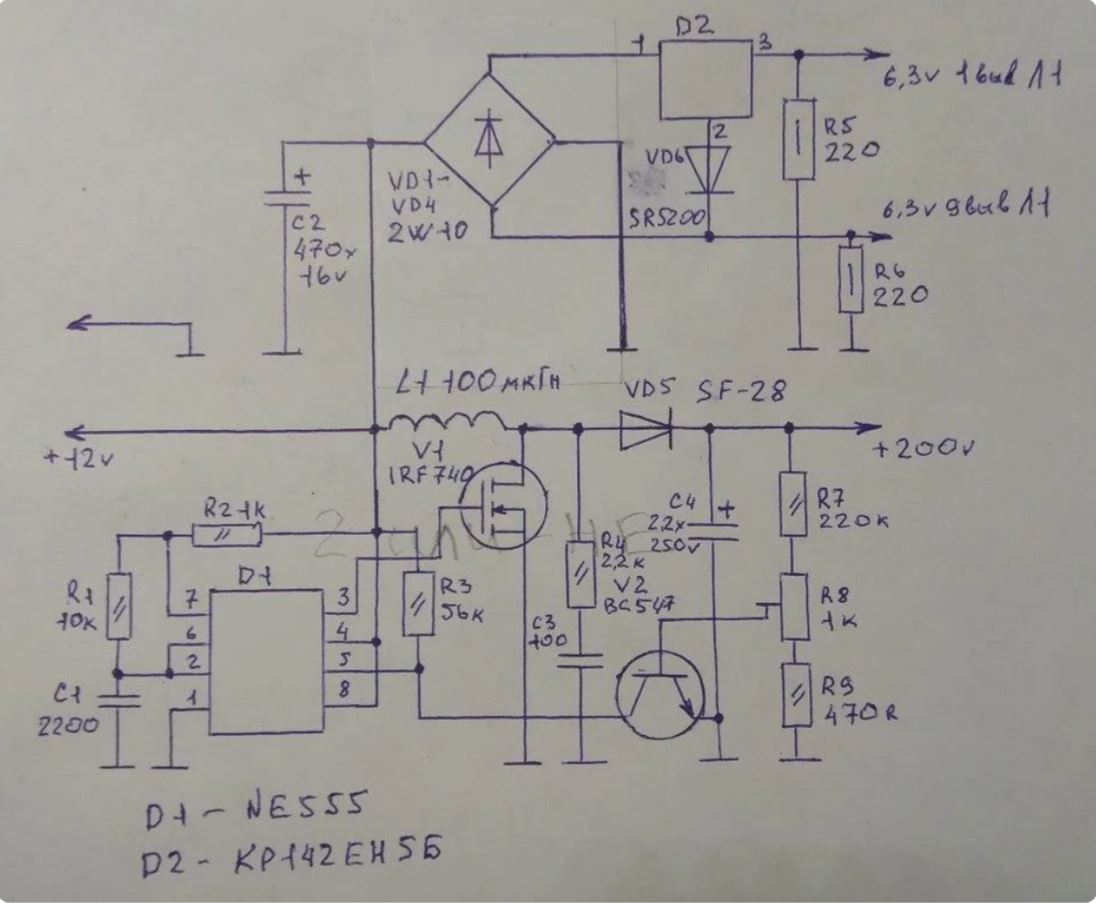 D2
1
3
6,3v 1выв Л1
2
VD6
R5
220
VD1-
VD4
2W10
SR5200
6,3v 9выв Л1
+
C2
470x
16v
R6
220
L1 100мкГн
VD5 SF-28
+12v
V1
IRF740
+200v
R2 1k
C4
2,2x
250v
+
R7
220k
R1
10k
D1
7
6
2
1
3
4
5
8
R3
56k
R4
22k
V2
BC547
C3
100
R8
1k
C1
2200
R9
470R
D1 - NE555
D2 - КР142ЕН5Б